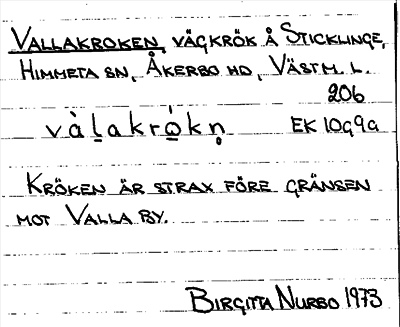 VALLAKROKEN, VÄGKRÖK Å STICKLINGE,
HIMMETA SN, ÅKERBO HD, VÄSTM. L.
206
và̀ḻakrò̱kn̥ EK 10G9a
KRÖKEN ÄR STRAX FÖRE GRÄNSEN
MOT VALLA BY.
BIRGITTA NURBO 1973